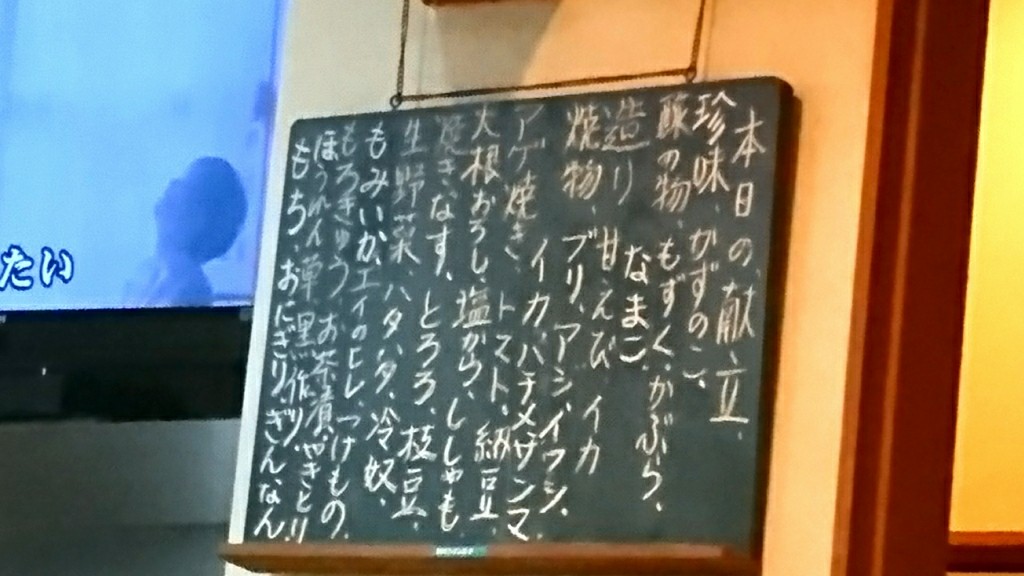 本日の、献立、
珍味、かずのこ、
酢の物、もずく、かぶら、
なまこ
造り 甘えび イカ
焼物、ブリ、アジ、イワシ、
イカ、ハチメ、サンマ
アゲ焼き、トマト、納豆
大根おろし、塩から、ししゃも
焼き、なす、とろろ、枝豆、
生野菜、ハタハタ、冷奴、
もみいか、エイのヒレ つけもの
もろきゅう、お茶漬、やきとり
ほうれん草、黒作り、ぎんなん
もち、おにぎり、
たい